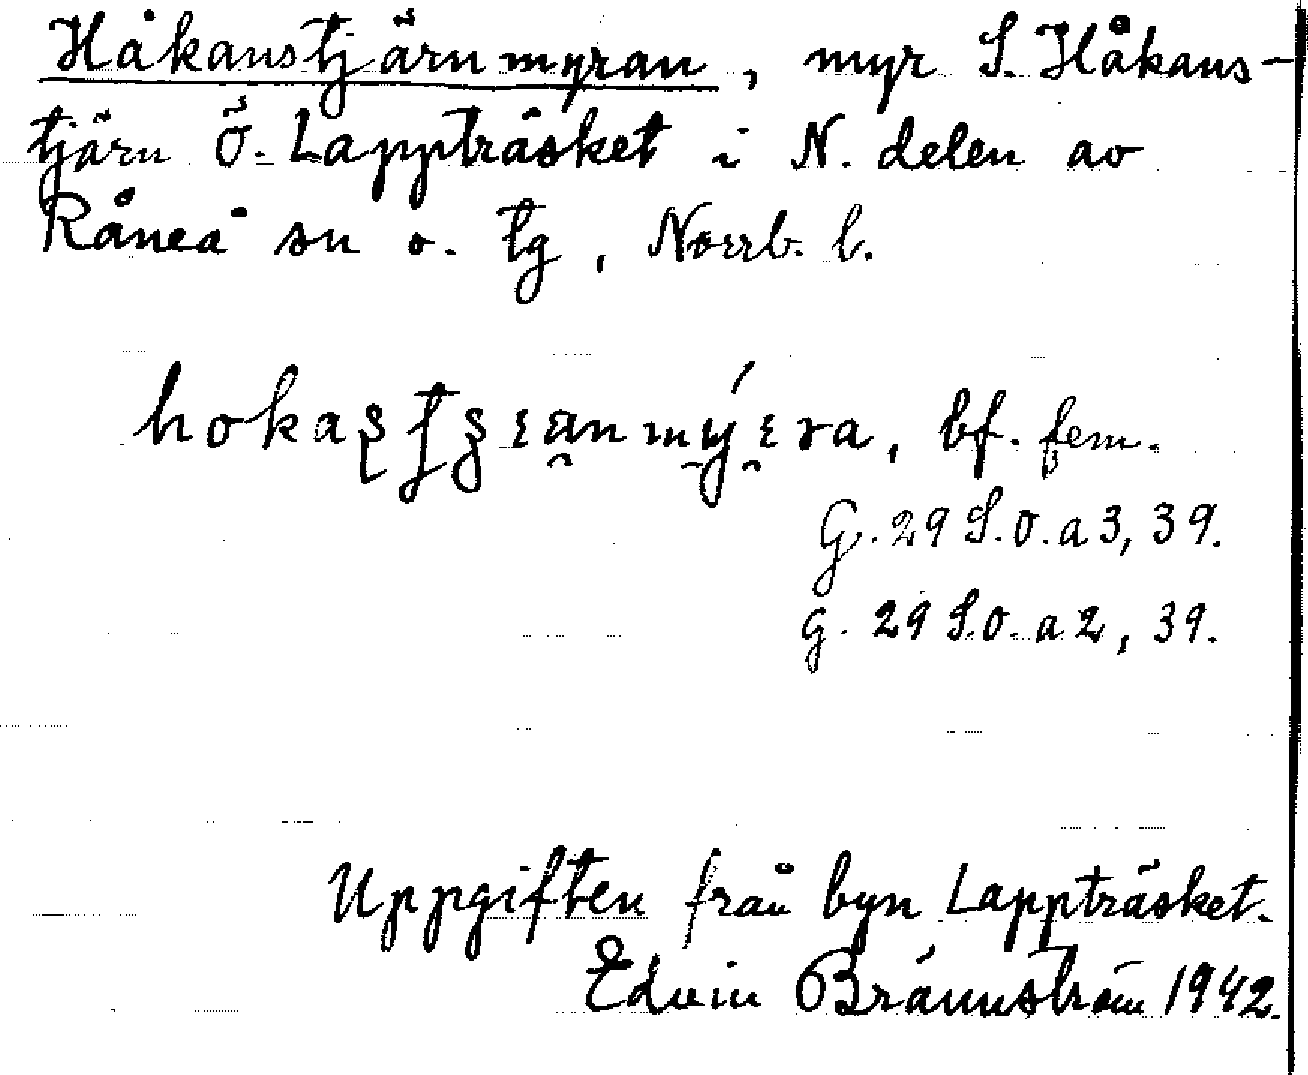 Håkanstjärnmyran, myr S. Håkans-
tjärn Ö. Lappträsket i N. delen av
Råneå sn o. tg, Norrb. l.
bf. fem.
G. 29 S.O. a 3, 39.
G. 29 S.O. a 2, 39.
Uppgiften från byn Lappträsket.
Edvin Brännström 1942.